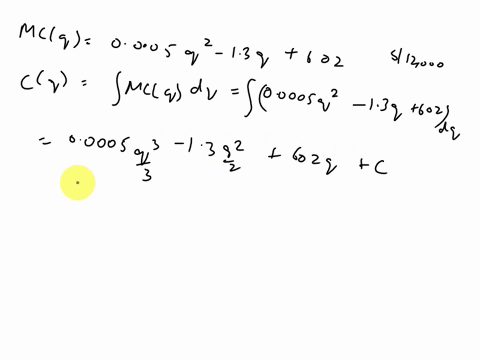 MC(q) = 0.0005 q² - 1.3q + 602 $/12,000
C(q) = ∫MC(q) dq = ∫(0.0005q² - 1.3q + 602) dq
= 0.0005 q³/3 - 1.3 q²/2 + 602q + C